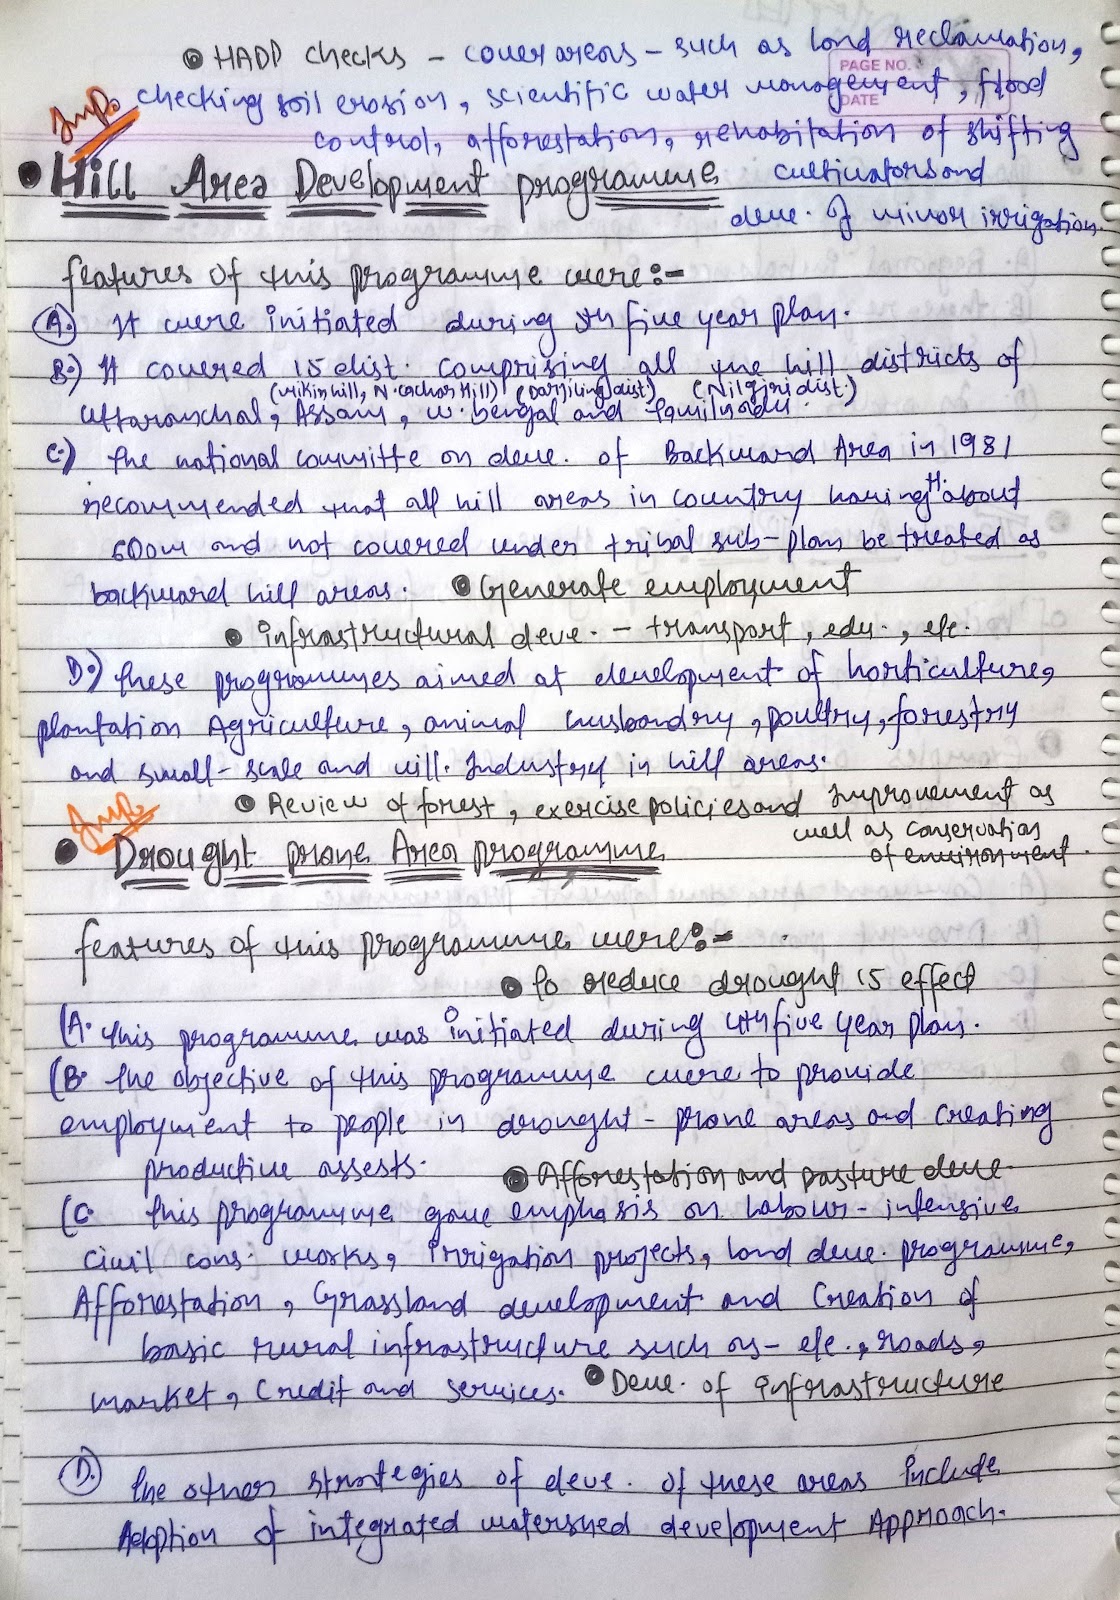 • HADP checks - cover areas - such as land reclamation,
PAGE NO.
DATE
Imp.
checking soil erosion, scientific water management, flood
control, afforestation, rehabitation of shifting
cultivators and
deve. of minor irrigation.
• Hill Area Development programme
features of this programme were:-
(A.) It were initiated during 5th five year plan.
B.) It covered 15 dist. comprising all the hill districts of
(Mikir hill, N. cachar Hill) (Darjiling dist.) (Nilgiri dist.)
Uttaranchal, Assam, w. bengal and Tamilnadu.
C.) The national committe on deve. of Backward Area in 1981
recommended that all hill areas in country having Ht. about
600m and not covered under tribal sub-plan be treated as
backward hill areas. • Generate employment
• infrastructural deve. - transport, edu., etc.
D.) These programmes aimed at development of horticulture,
plantation Agriculture, animal husbandry, poultry, forestry
and small-scale and vill. Industry in hill areas.
• Review of forest, exercise policies and Improvement as
well as conservation
of environment.
Imp.
• Drought prone Area programme
features of this programme were:-
• To reduce drought is effect
(A. This programme was initiated during 4th five year plan.
(B. The objective of this programme were to provide
employment to people in drought-prone areas and creating
productive assests.
• Afforestation and pasture deve.
(C. This programme gave emphasis on labour-intensive
civil cons. works, irrigation projects, land deve. programme,
Afforestation, Grassland development and Creation of
basic rural infrastructure such as- ele., roads,
market, Credit and services. • Deve. of infrastructure
(D.) The other strategies of deve. of these areas include
Adoption of integrated watershed development Approach.